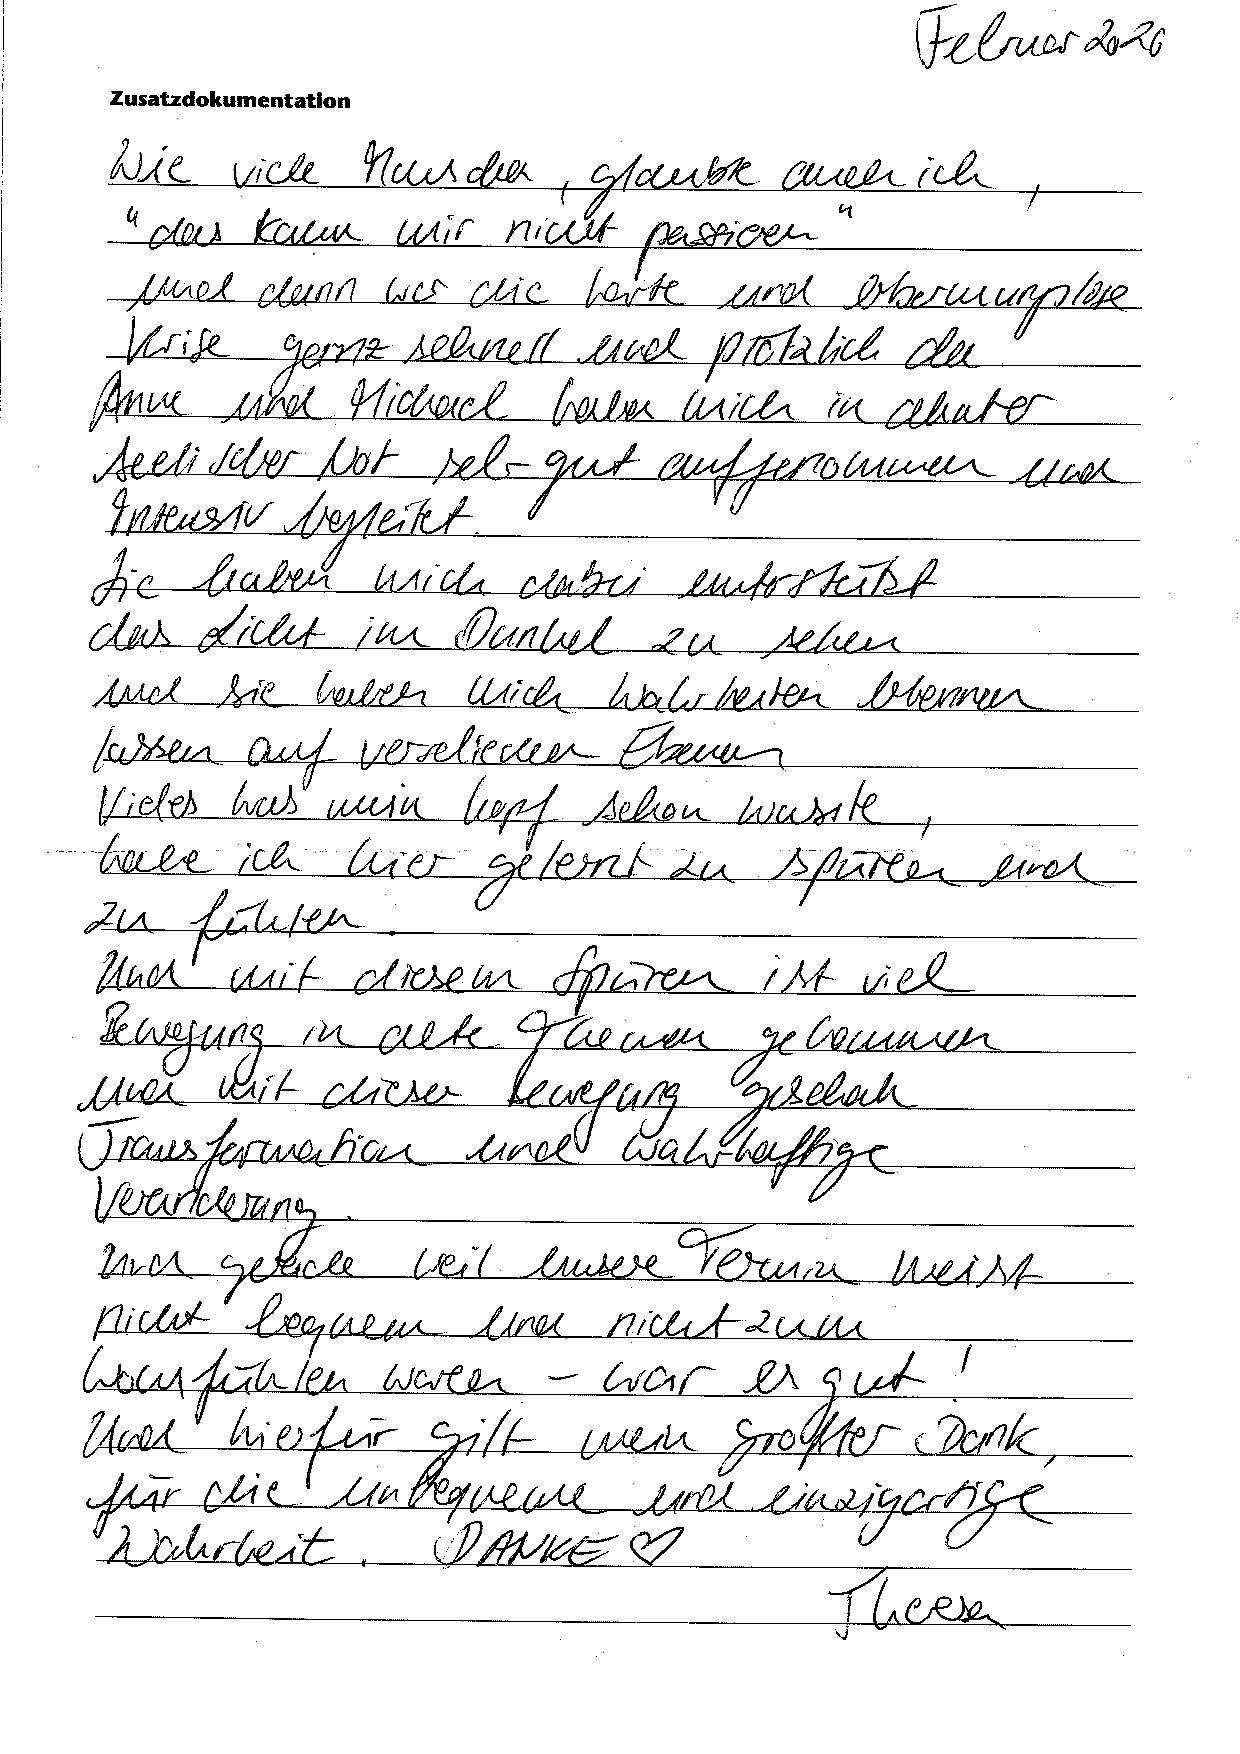 Februar 2020
Zusatzdokumentation
Wie viele Menschen, glaubte auch ich,
"das kann mir nicht passieren"
und dann war die harte und erbarmungslose
Krise ganz schnell und plötzlich da
Anne und Michael haben mich in akuter
seelischer Not sehr gut aufgenommen und
Intensiv begleitet.
Sie haben mich dabei unterstützt
das Licht im Dunkel zu sehen
und sie haben mich Wahrheiten erkennen
lassen auf verschiedenen Ebenen
Vieles was mein Kopf schon wusste,
habe ich hier gelernt zu spüren und
zu fühlen.
Und mit diesem Spüren ist viel
Bewegung in alte Themen gekommen
und mit dieser Bewegung geschah
Transformation und wahrhaftige
Veränderung.
Und gerade weil unsere Termine meist
nicht bequem und nicht zum
Wohlfühlen waren – war es gut!
Und hierfür gilt mein größter Dank,
für die unbequeme und einzigartige
Wahrheit. DANKE ♡
Theresa